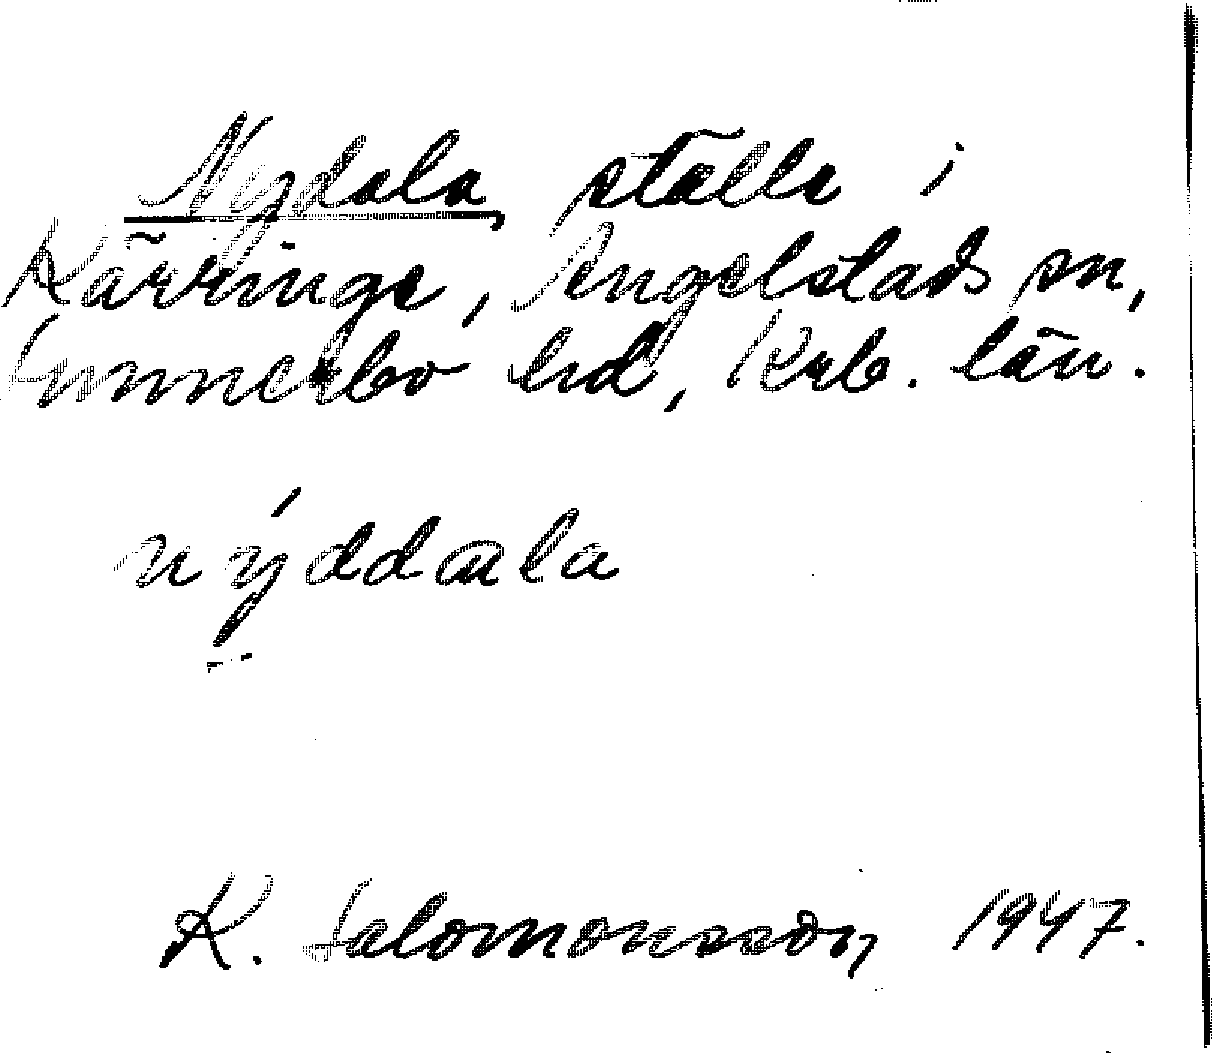 Nydala, ställe i
Kärringe, Angelstads sn,
Sunnerbo hd, Krb. län.
nýddala
K. Salomonsson 1947.